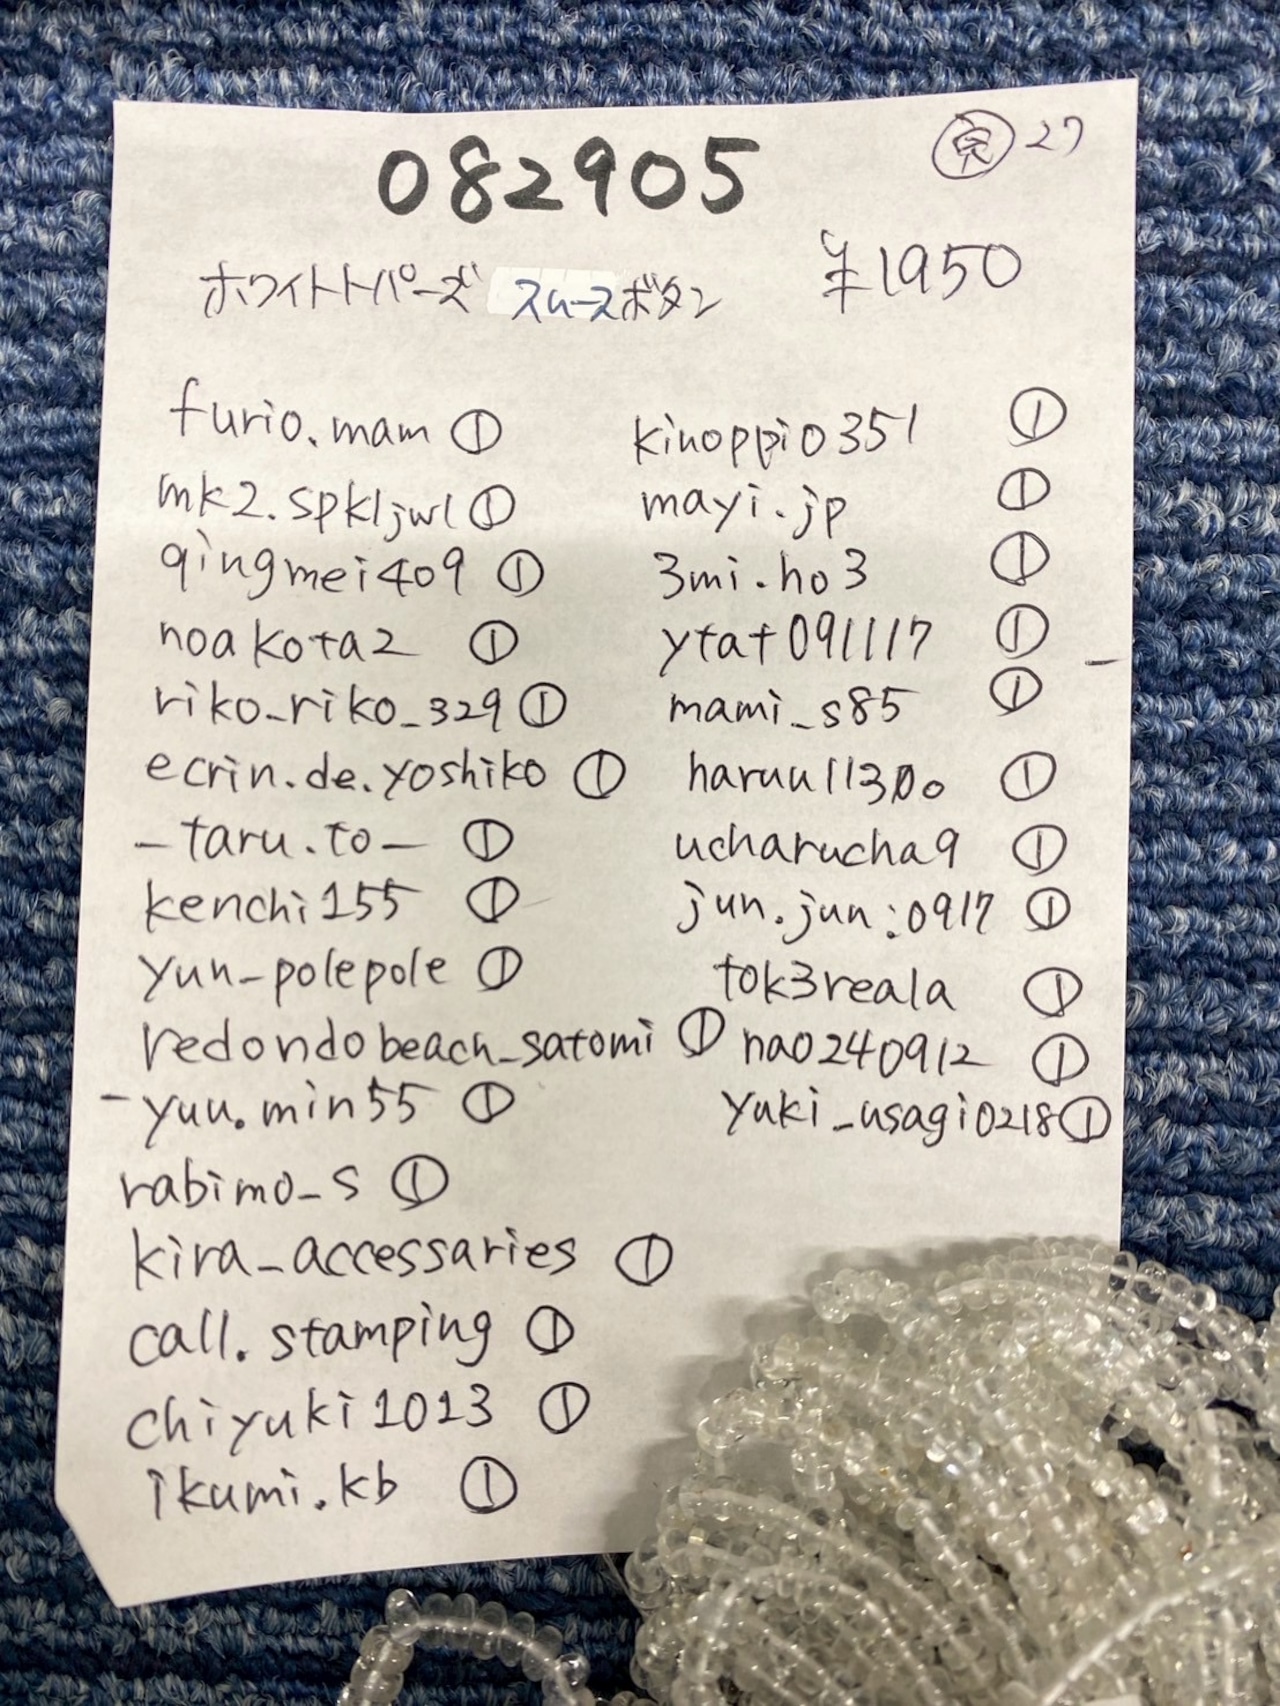 082905
完 27
ホワイトトパーズ スムースボタン ¥1950
furio.mam ①
mk2.spkljwl ①
qingmei409 ①
noakota2 ①
riko_riko_329 ①
ecrin.de.yoshiko ①
_taru.to_ ①
kenchi155 ①
yun_polepole ①
redondobeach_satomi ①
-yuu.min55 ①
rabimo_s ①
kira_accessaries ①
call.stamping ①
chiyuki1013 ①
ikumi.kb ①
kinoppi0351 ①
mayi.jp ①
3mi.ho3 ①
ytat091117 ①
mami_s85 ①
haruu1130o ①
ucharucha9 ①
jun.jun:0917 ①
tok3reala ①
na0240912 ①
yuki_usagi0218 ①